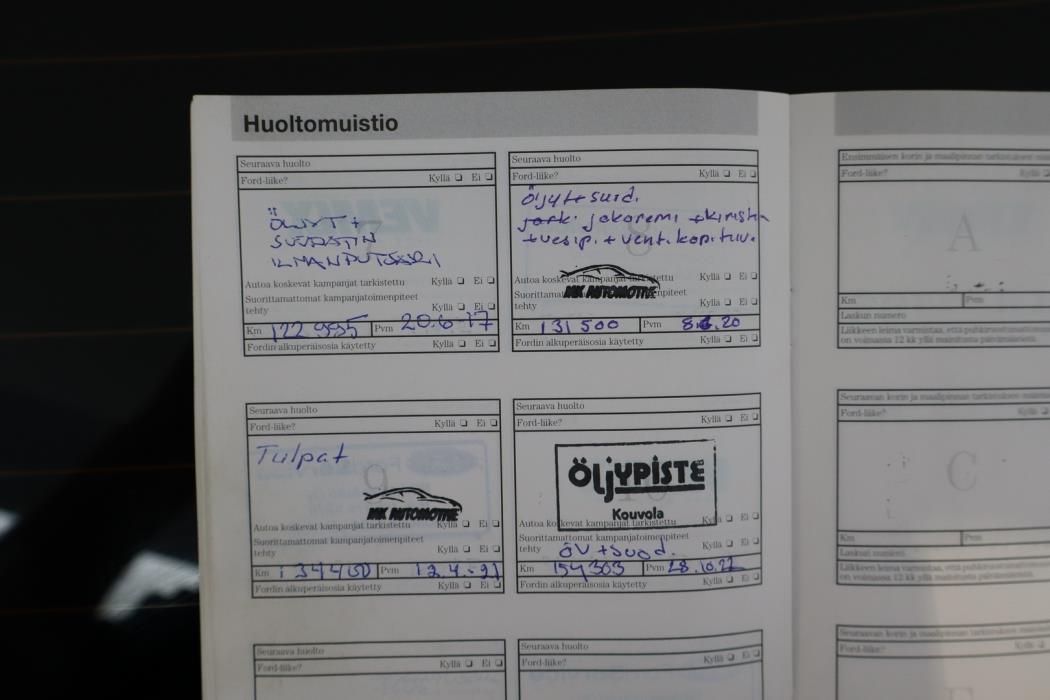 Huoltomuistio
Seuraava huolto
Ford-liike? Kyllä ❏ Ei ❏
ÖLJYT +
SUODATIN
ILMANPUTSARI
Autoa koskevat kampanjat tarkistettu Kyllä ❏ Ei ❏
Suorittamattomat kampanjatoimenpiteet
tehty Kyllä ❏ Ei ❏
Km 122 995 Pvm 20.6-17
Fordin alkuperäisosia käytetty Kyllä ❏ Ei ❏
Seuraava huolto
Ford-liike? Kyllä ❏ Ei ❏
Öljyt+suod.
jakoremi +kirist
+vesip. + vent.kop.tiiv.
8
Autoa koskevat kampanjat tarkistettu Kyllä ❏ Ei ❏
MK AUTOMOTIVE
Suorittamattomat kampanjatoimenpiteet
tehty Kyllä ❏ Ei ❏
Km 131 500 Pvm 20
Fordin alkuperäisosia käytetty Kyllä ❏ Ei ❏
Seuraava huolto
Ford-liike? Kyllä ❏ Ei ❏
Tulpat
9
MK AUTOMOTIVE
Autoa koskevat kampanjat tarkistettu Kyllä ❏ Ei ❏
Suorittamattomat kampanjatoimenpiteet
tehty Kyllä ❏ Ei ❏
Km 134400 Pvm 12.4.-21
Fordin alkuperäisosia käytetty Kyllä ❏ Ei ❏
Seuraava huolto
Ford-liike? Kyllä ❏ Ei ❏
ÖLJYPISTE
Kouvola
Autoa koskevat kampanjat tarkistettu Kyllä ❏ Ei ❏
Suorittamattomat kampanjatoimenpiteet
tehty ÖV +Suod. Kyllä ❏ Ei ❏
Km 154303 Pvm 28.10.22
Fordin alkuperäisosia käytetty Kyllä ❏ Ei ❏
Seuraava huolto
Ford-liike? Kyllä ❏ Ei ❏
Seuraava huolto
Ford-liike? Kyllä ❏ Ei ❏
Ensimmäisen korin ja maalipinnan tarkastuksen
Ford-liike? Kyllä
A
Km Pvm
Laskun numero
Liikkeen leima varmistaa, että puhkiruostumattomuus
on voimassa 12 kk yllä mainitusta päivämäärästä.
Seuraavan korin ja maalipinnan tarkastuksen
Ford-liike? Kyllä
C
Km Pvm
Laskun numero
Liikkeen leima varmistaa, että
on voimassa 12 kk yllä mainitusta päivämäärästä.
Seuraavan korin ja maalipinnan tarkastuksen
Ford-liike?